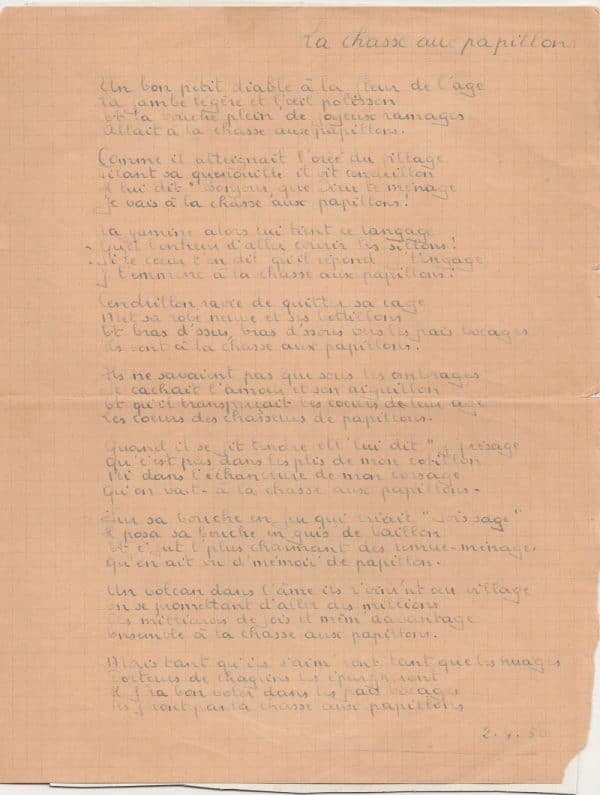 La chasse aux papillons
Un bon petit diable à la fleur de l'age
La jambe légère et l'œil polisson
Et la bouche plein' de joyeux ramages
Allait à la chasse aux papillons.
Comme il atteignait l'orée du village
filant sa quenouille il vit cendrillon
Il lui dit "bonjour, que Dieu te ménage
Je vais à la chasse aux papillons!
La gamine alors lui tint ce langage
Quel bonheur d'aller courir les sillons!
Si le cœur t'en dit qu'il répond l'engage
J't'emmène à la chasse aux papillons!
Cendrillon ravie de quitter sa cage
Met sa robe neuve et ses bottillons
Et bras d'ssus, bras d'ssous vers les frais bocages
Ils vont à la chasse aux papillons.
Ils ne savaient pas que sous les ombrages
Se cachait l'amour et son aiguillon
Et qu'il transperçait les cœurs de leur age
Les coeurs des chasseurs de papillons.
Quand il se fit tendre ell' lui dit "J'présage
Qu'c'est pas dans les plis de mon cotillon
Ni dans l'échancrure de mon corsage
Qu'on va-t-à la chasse aux papillons.
Sur sa bouche en feu qui criait "Sois sage"
Il posa sa bouche en guis' de baillon
Et c'fut l'plus charmant des remue-ménages
Qu'on ait vu d'mémoir' de papillon.
Un volcan dans l'âme ils r'vinr'nt au village
en se promettant d'aller des millions
Des milliards de fois et mêm' davantage
Ensemble à la chasse aux papillons.
Mais tant qu'ils s'aim'ront, tant que les nuages
Porteurs de chagrins les épargneront
Il f'ra bon voler dans les frais bocages
Ils f'ront pas la chasse aux papillons